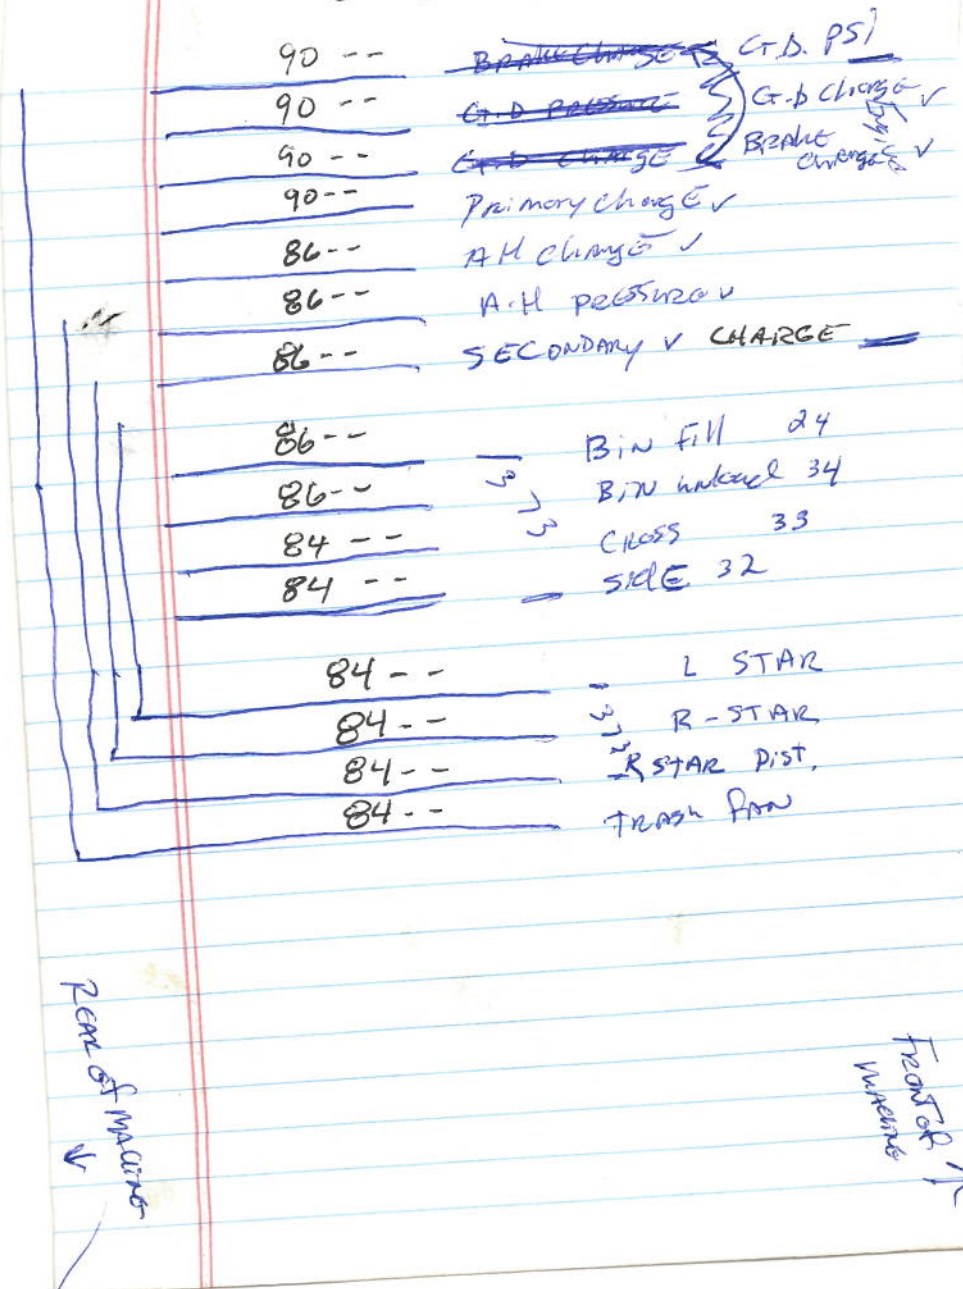 90 -- BRAKE CHARGE G.D. PSI
90 -- G.D PRESSURE G.D CHARGE ✓
90 -- G.D CHARGE BRAKE CHARGE ✓
90-- Primary ChargE ✓
86-- A H ChargE ✓
86-- A.H PRESSURE ✓
86-- SECONDARY ✓ CHARGE
86-- BiN Fill 24
86-- BiN unload 34
84 -- CROSS 33
84 -- SIdE 32
84-- L STAR
84-- R-STAR
84-- R STAR DiST.
84-- TRASH PAN
REAR of MACHINE ↓
FRONT OF MACHINE ↑